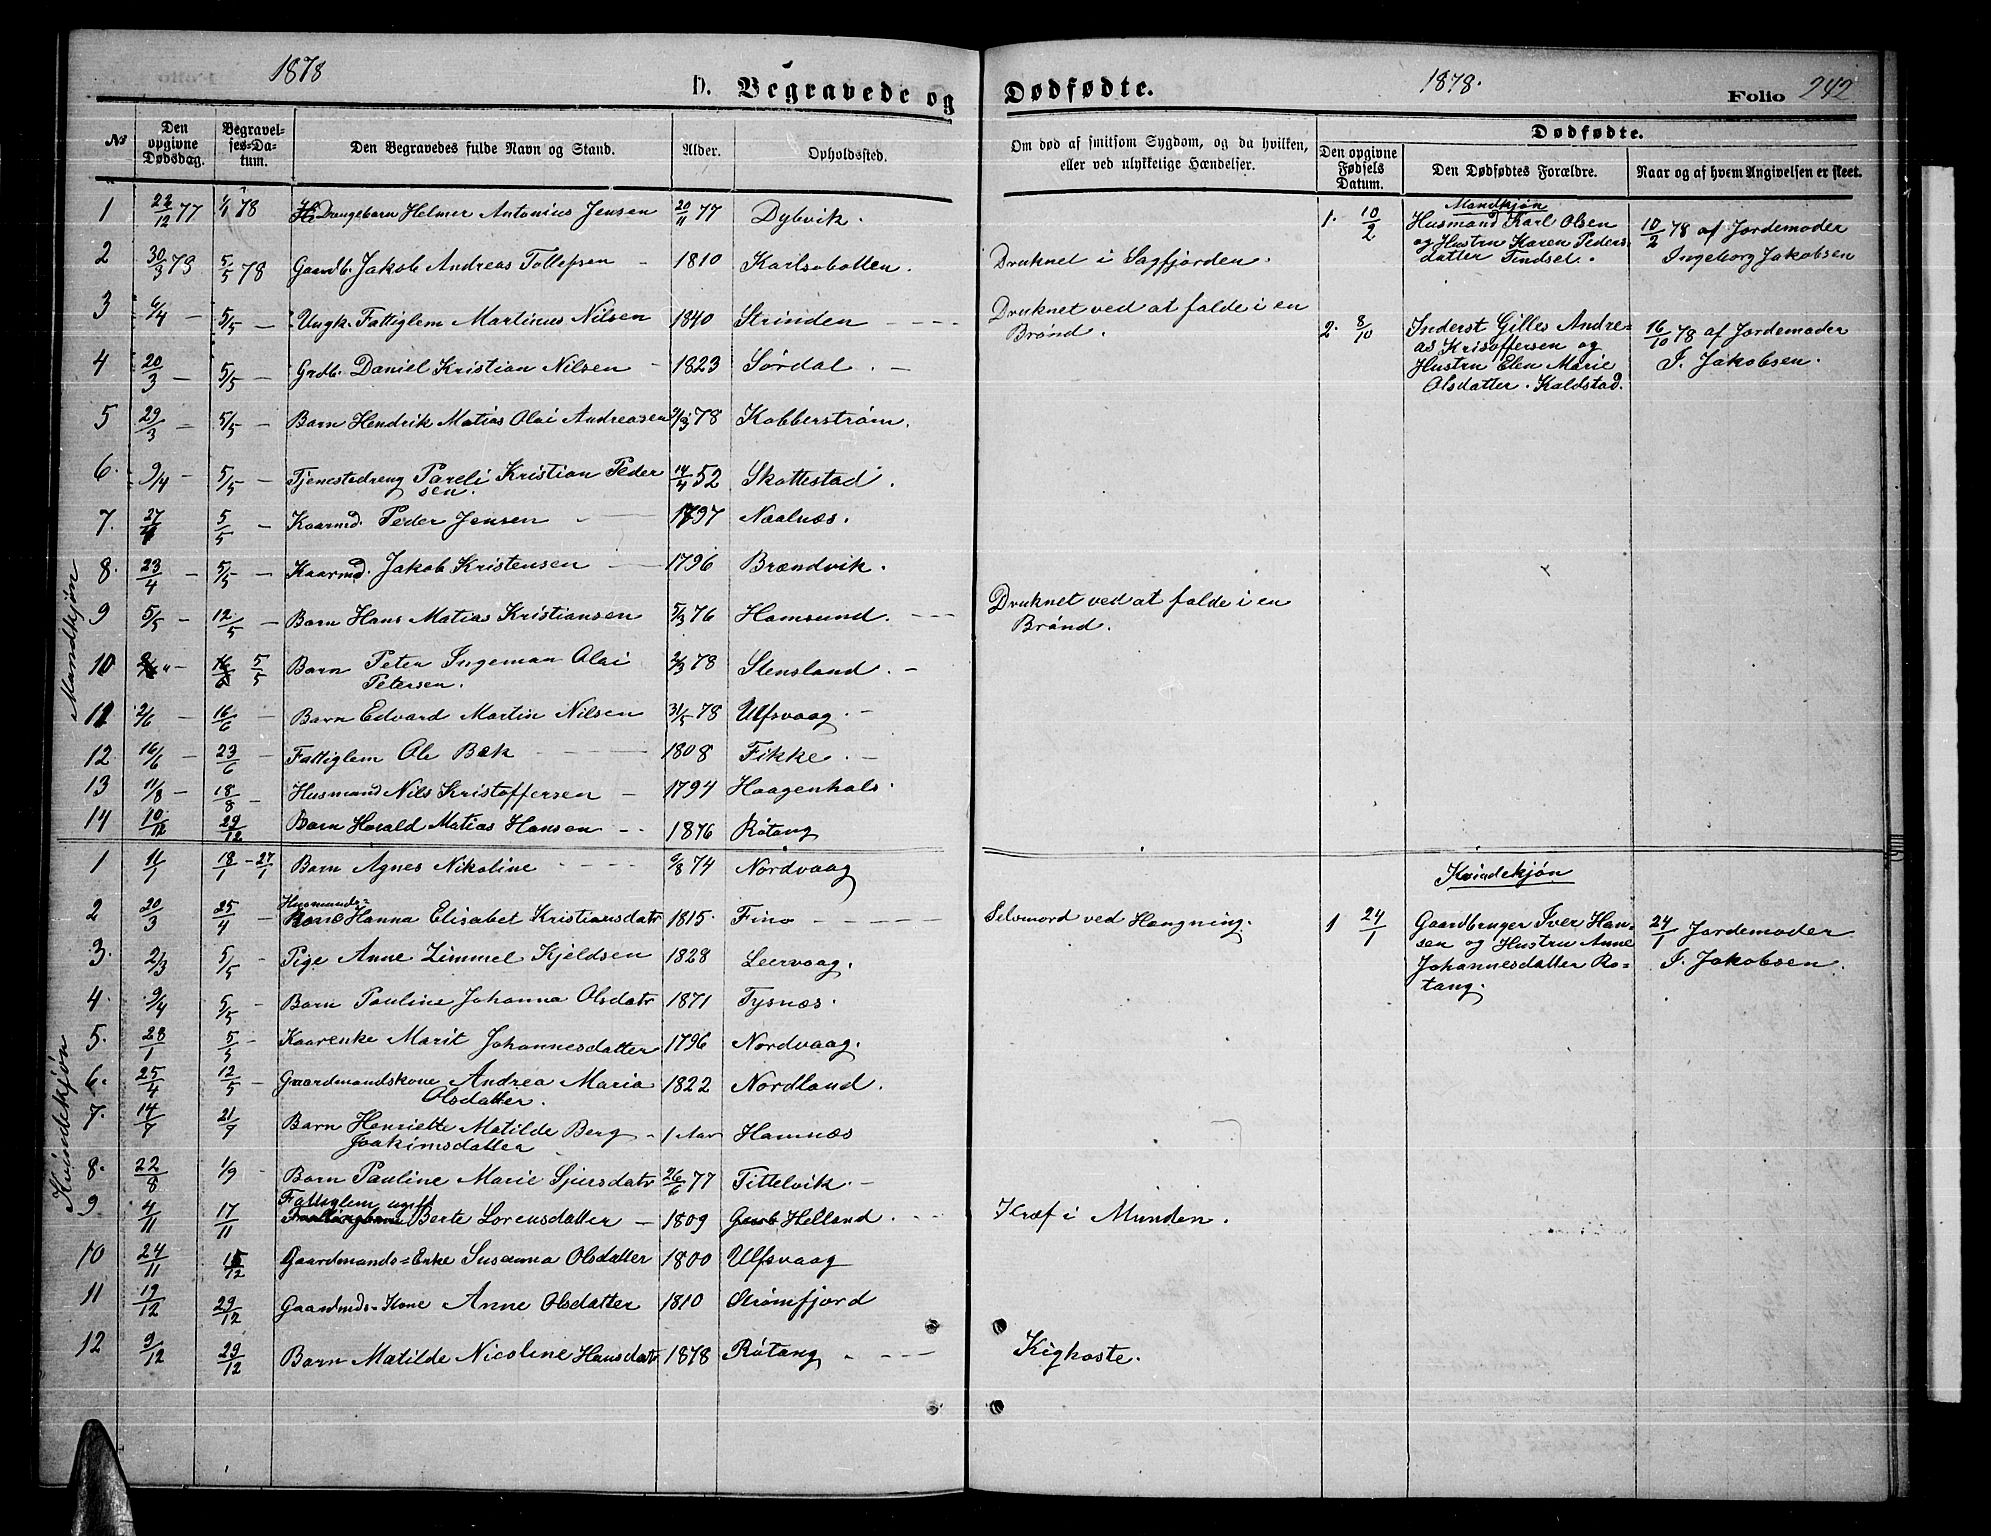 1878
D. Begravede og
Dødfødte.
1878.
Folio 242
No
Den opgivne Dødsdag.
Begravelses-Datum.
Den Begravedes fulde Navn og Stand.
Alder.
Opholdssted.
Om død af smitsom Sygdom, og da hvilken, eller ved ulykkelige Hændelser.
Dødfødte.
Den opgivne Fødsels Datum.
Den Dødfødtes Forældre.
Naar og af hvem Angivelsen er skeet.
Mandkjøn
1 22/12 77 1/1 78 Drengebarn Helmer Antonius Jensen 20/11 77 Dybvik.
2 30/3 73 5/5 78 Gaardb. Jakob Andreas Tollefsen – 1810 Karlsobotten. Druknet i Sagfjorden.
3 6/4 – 5/5 – Ungk. Fattiglem Martinus Nilsen 1840 Strinden – – – Druknet ved at falde i en
Brønd.
4 20/3 – 5/5 – Grdb. Daniel Kristian Nilsen – 1823 Sørdal. –
5 29/3 – 5/5 – Barn Hendrik Matias Olai Andreasen 2/3 78 Kobberstrøm.
6. 9/4 – 5/5 – Tjenestedreng Pareli Kristian Peder
sen. 14/4 52 Skottestad.
7. 27/4 5/5 – Kaarmd. Peder Jensen – 1797 Naalnæs.
8. 23/4 – 5/5 – Kaarmd. Jakob Kristensen – 1796 Brændvik.
9 5/5 – 12/5 – Barn Hans Matias Kristiansen 5/3 76 Hamsund. – – – Druknet ved at falde i en
Brønd.
10 16/6 5/5 Barn Peter Ingeman Olai
Petersen. 2/3 78 Stensland. –
11 2/6 – 16/6 – Barn Edvard Martin Nilsen 31/5 78 Ulfsvaag. –
12 16/6 – 23/6 – Fattiglem Ole Bæk – – – 1808 Fikke. –
13 11/8 – 18/8 – Husmand Nils Kristoffersen – 1794 Haagenhals.
14 10/12 29/12 Barn Harald Matias Hansen – – 1876 Røtang
Kvindekjøn
1 11/1 18/1 – 27/1 Barn Agnes Nikoline – – – – 6/8 74 Nordvaag
Husmands-
2 20/3 25/4 – Kone Hanna Elisabet Kristiansdatr 1815. Finø – – – – Selvmord ved Hængning.
3. 2/3 5/5 – Pige Anne Zimmel Kjeldsen 1828 Leervaag.
4. 9/4 5/5 – Barn Pauline Johanna Olsdatr 1871 Tysnæs.
5. 28/1 5/5 – Kaarenke Marit Johannesdatter 1796 Nordvaag.
6. 25/4 12/5 – Gaardmandskone Andrea Maria
Olsdatter. 1822 Nordland.
7. 14/7 21/7 Barn Henriette Matilde Berg
Joakimsdatter – 1 Aar Hamnæs
8. 22/8 1/9 – Barn Pauline Marie Sjursdatr 26/6 77 Tittelvik. –
Fattiglem ugift
9 4/11 17/11 Berte Lorensdatter – 1809 Helland. – – – Kræf i Munden.
10 24/11 15/12 Gaardmands-Enke Susanna Olsdatter 1800 Ulfsvaag
11 19/12 29/12 Gaardmds-Kone Anne Olsdatter 1810 Strømfjord
12 9/12 29/12 Barn Matilde Nicoline Hansdatr 1878 Røtang – – – – Kighoste.
Mandkjøn
1. 10/2 Husmand Karl Olsen
og Hustru Karen Peders-
datter Tindset.
10/2 78 af Jordemoder
Ingeborg Jakobsen
2. 8/10 Inderst Gilles Andre-
as Kristoffersen og
Hustru Elen Marie
Olsdatter. Kaldstad.
16/10 78 af Jordemoder
I. Jakobsen.
Kvindekjøn
1 24/1 Gaardbruger Iver Han-
sen og Hustru Anne
Johannesdatter Rø-
tang.
24/1 Jordemoder
I. Jakobsen.